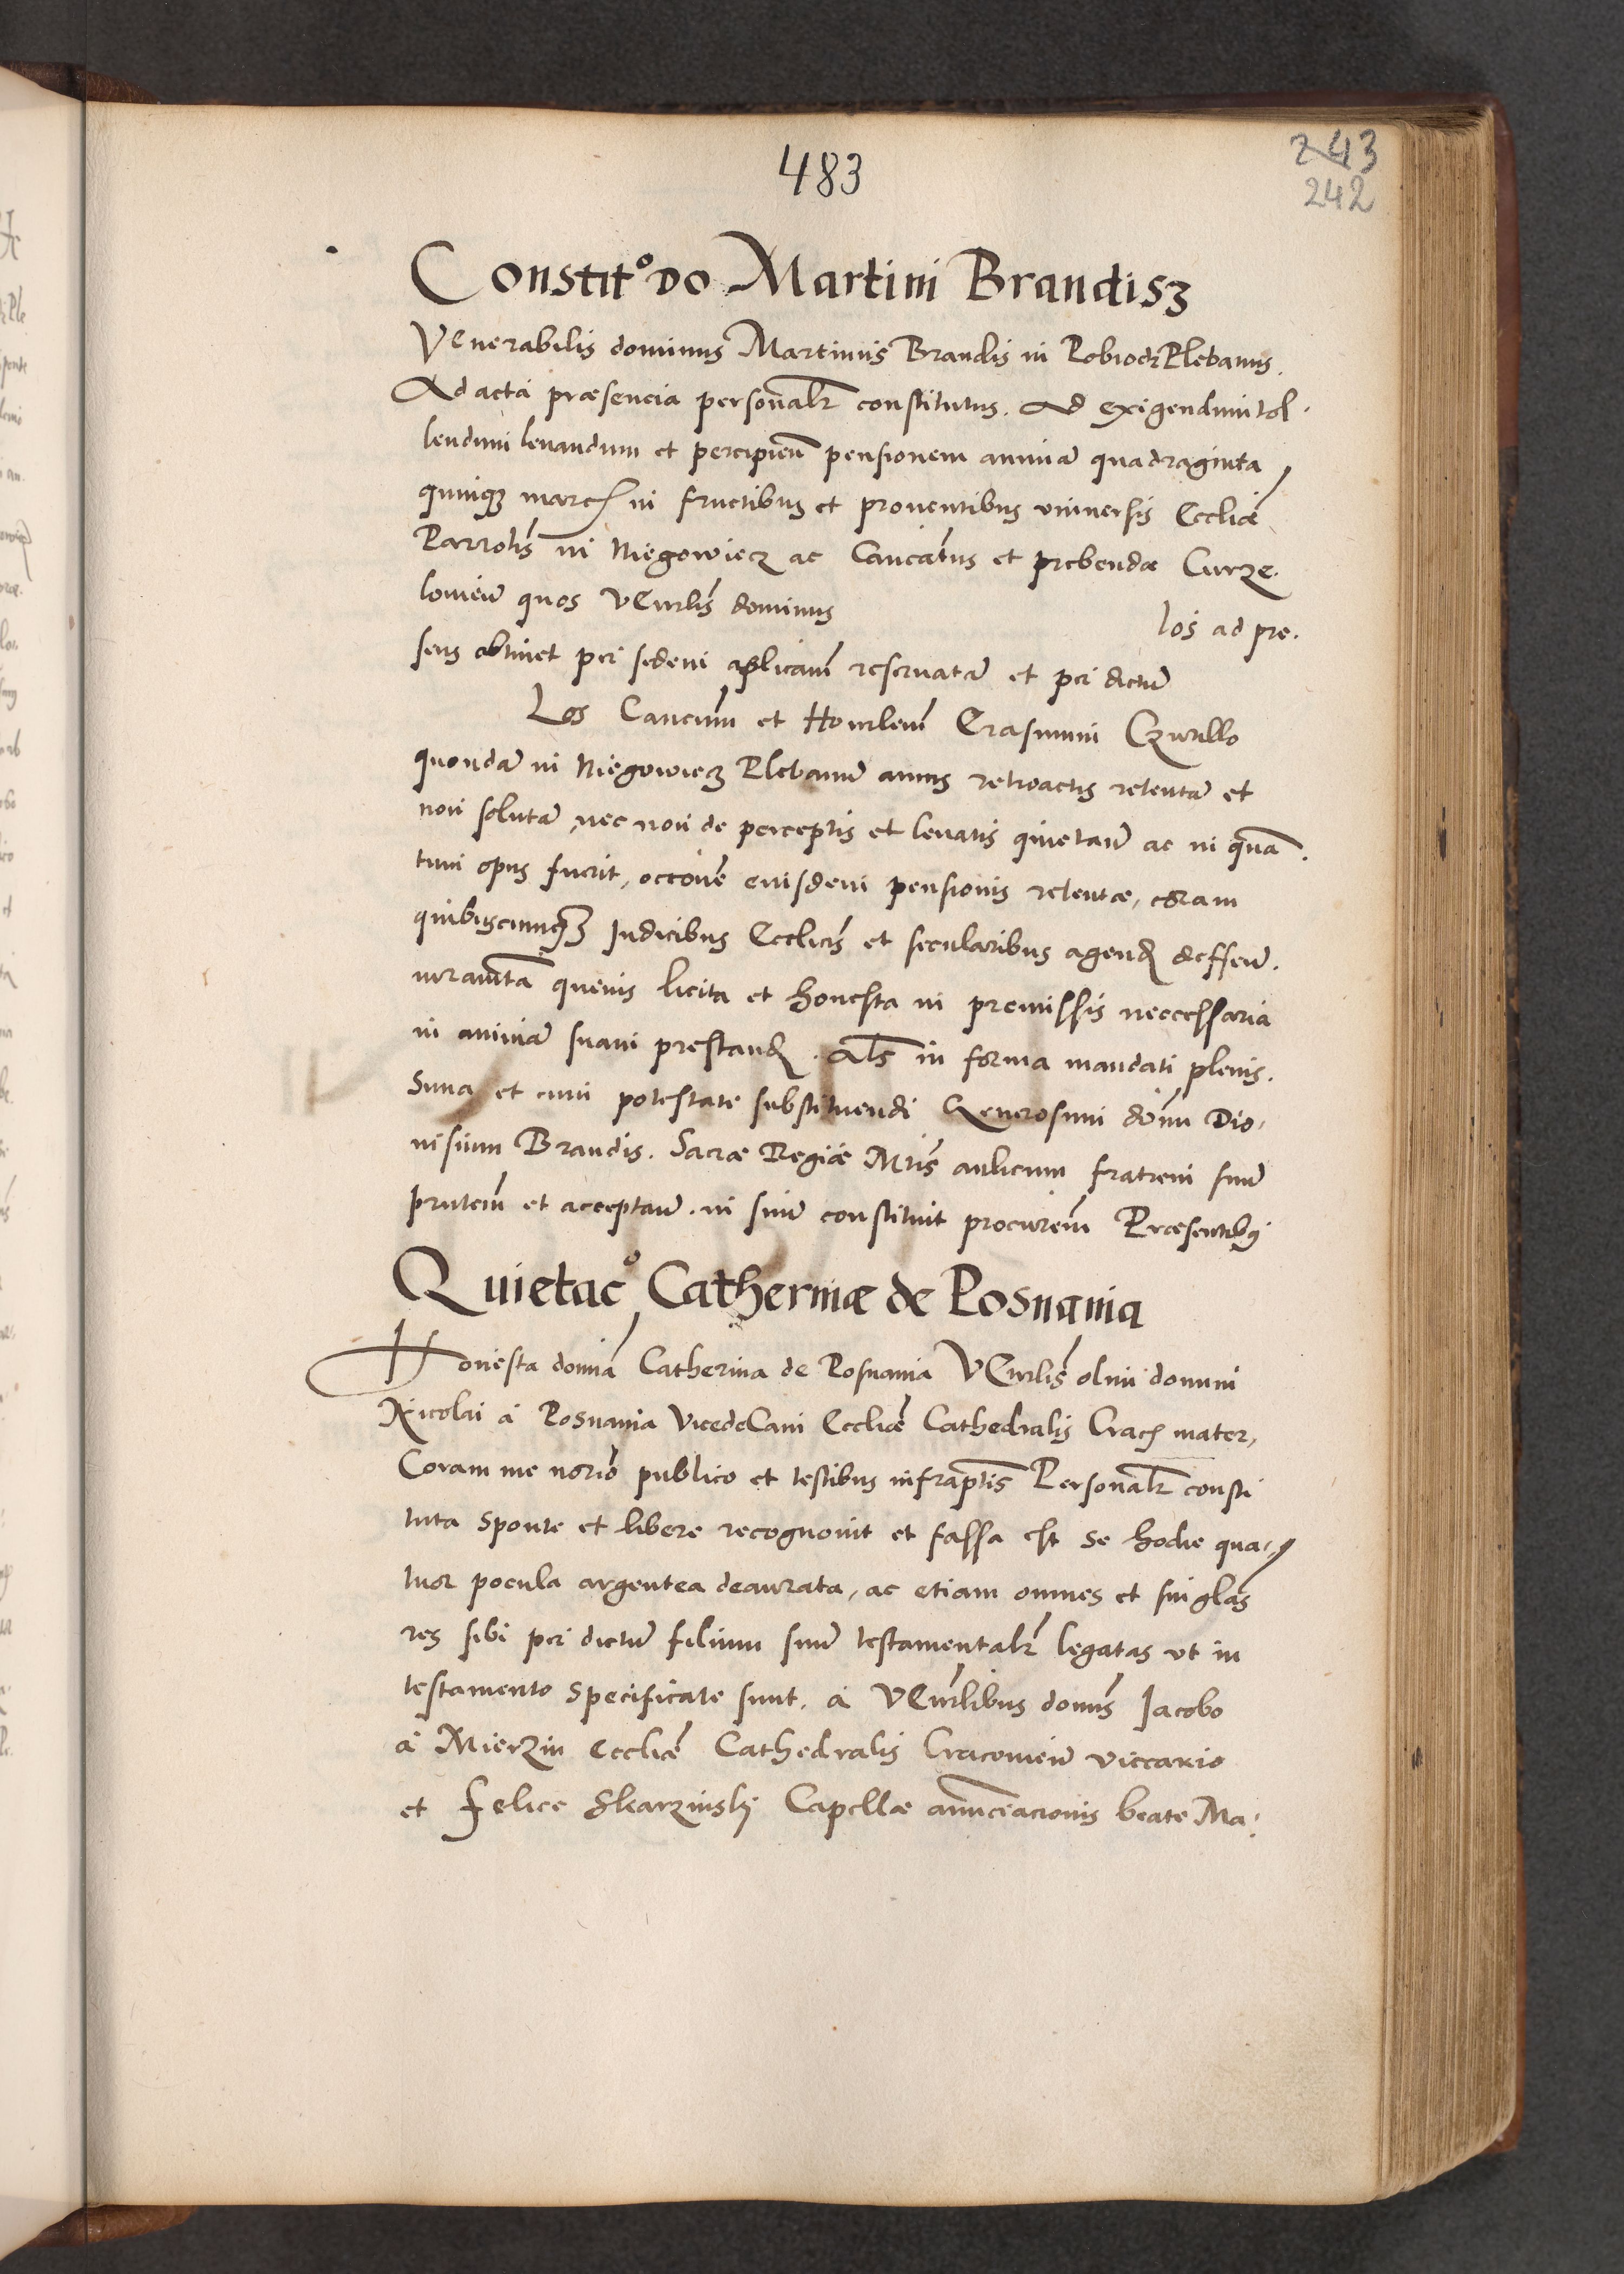 483
243
242
Constit° Do Martini Brandisz
VEnerabilis dominus Martinus Brandis in Pobiodr Plebanus.
Ad acta præsencia personalr constitutus. Ad exigendum tol.
lendum leuandum et percipien pensionem annuā quadraginta
quinqz march in fructibus et prouentibus vniuersis Eccliæ
Parrolis in Niegowiecz ac Cancatus et prebendæ Curze.
louien quos VEnrlis dominus los ad pre.
sens obtinet per sedem aplicam reseruatā et per dictū
Los Cancum et Honrlem Erasmum Czurillo
quondā in Niegowiecz Plebanū annis retroactis retentā et
non solutā, nec non de perceptis et leuatis quietan ac in quā.
tum opus fuerit, occone eiusdem pensionis retentæ, coram
quibuscunqz Iudicibus Ecclicis et secularibus agend deffen.
iuramta quæuis licita et honesta in premissis neccessaria
in animā suam prestand. Als in forma mandati plenis.
Sima et cum potestate substituendi Generosum domn Dio,
nisium Brandis. Sacræ Regiæ Mtis aulicum fratrem suū
prntem et acceptan. in suū constituit procurem Præsentibus
Quietac° Catherinæ de Posnania
Honesta domina Catherina de Posnania VEnrlis olim domini
Nicolai à Posnania VicedeCani Eccliæ Cathedralis Crach mater,
Coram me norio publico et testibus infraptis Personalr consti
tuta sponte et libere recognouit et fassa est se hodie qua,,
tuor pocula argentea deaurata, ac etiam omnes et singlas
res sibi per dictū filium suū testamentalr legatas vt in
testamento specificate sunt. à VEnrlibus domis Iacobo
à Mierzin Eccliæ Cathedralis Cracouien viccario
et Felice Skarzinskij Capellæ annuncacionis beate Ma: